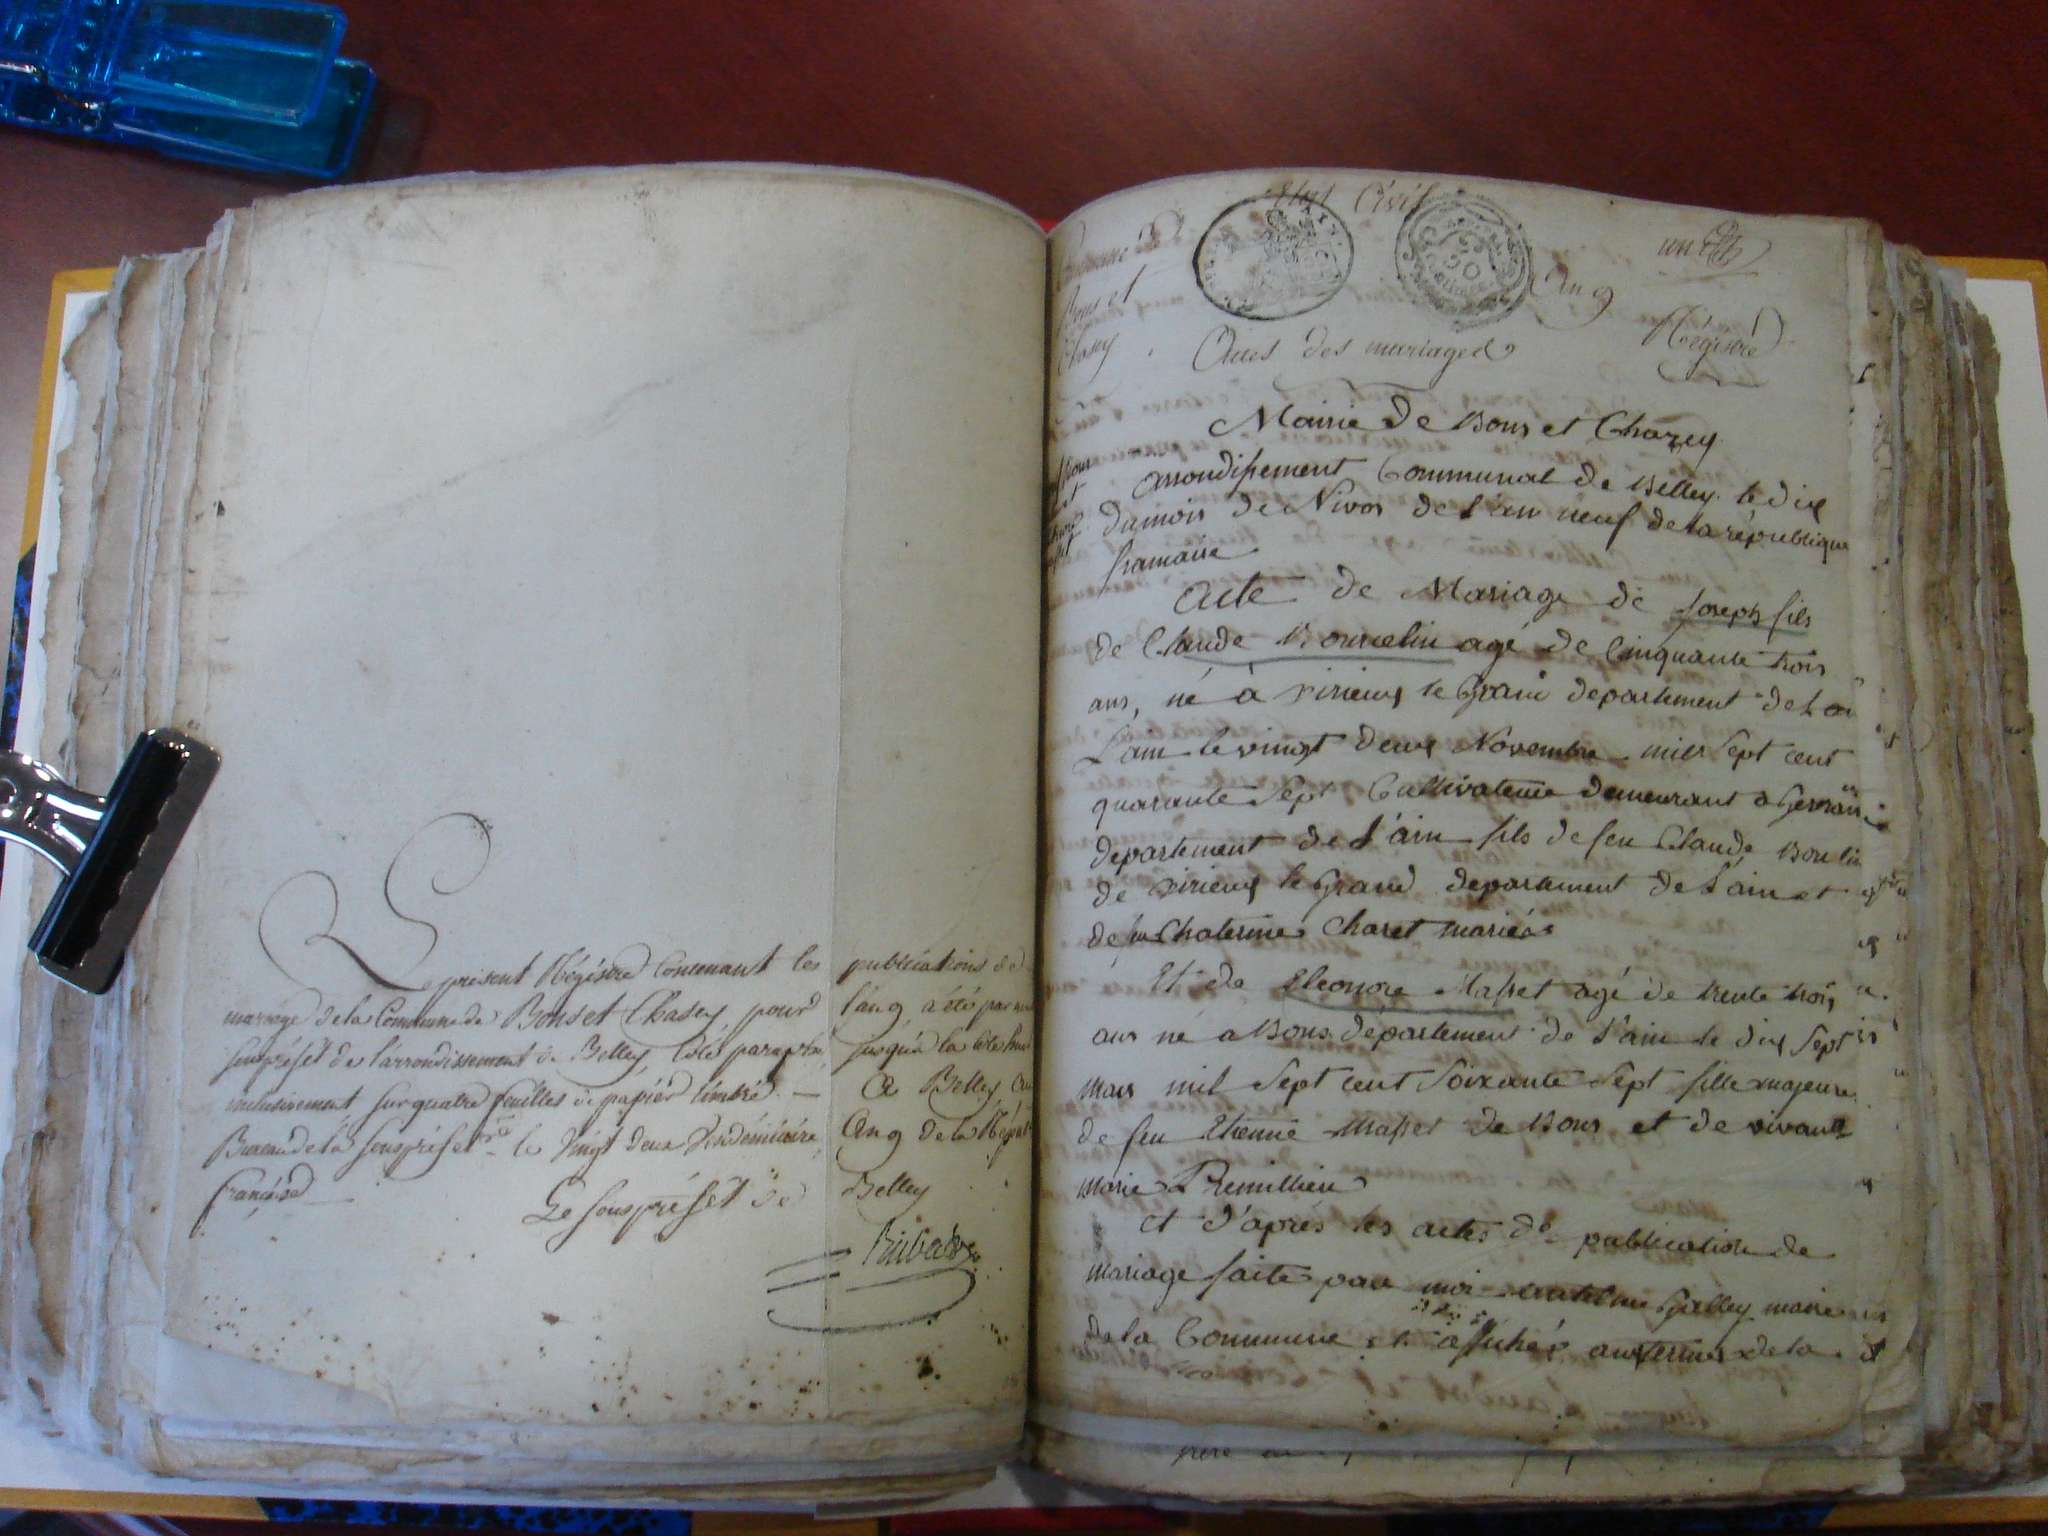 Le présent Régistre Contenant les publications de
mariage de la Commune de Bons et Chasey pour l'an 9 a été par nous
sous préfet de l'arrondissement de Belley, Coté paraphé jusqu'a la
inclusivement sur quatre feuilles de papier timbré — A Belley au
Bureau de la sous préfet^re le Vingt deux Vendémiaire An 9 de la Répub
françaised
Le sous préfet de Belley
Rubat
Etat Civil
Commune de
Bons et
Chasey
An 9
un
Régistre
Actes des mariages
Mairie de Bons et Chazey
arrondissement Communal de Belley le dix
du mois de Nivos de l'an neuf de la république
francaise
Acte de Mariage de Joseph fils
de Claude Bourcelin agé de Cinquante trois
ans, né à virieux le Grand departement de
L'ain le vingt deux Novembre mil sept cent
quarante sept Cultivateur demeurant a
departement de L'ain fils de feu Claude
de virieux le Grand departement de L'ain et
de feu Chaterine Charet mariés
Et de Eleonore Masset agé de trente trois
ans né a Bons département de L'ain le dix sept
mars mil sept cent soixante sept fille majeure
de feu Etienne Masset de Bons et de vivante
marie Premillieu
et d'après les actes de publication de
mariage faite par moi antelme Gelley maire
de la Commune et affichés aux termes de la